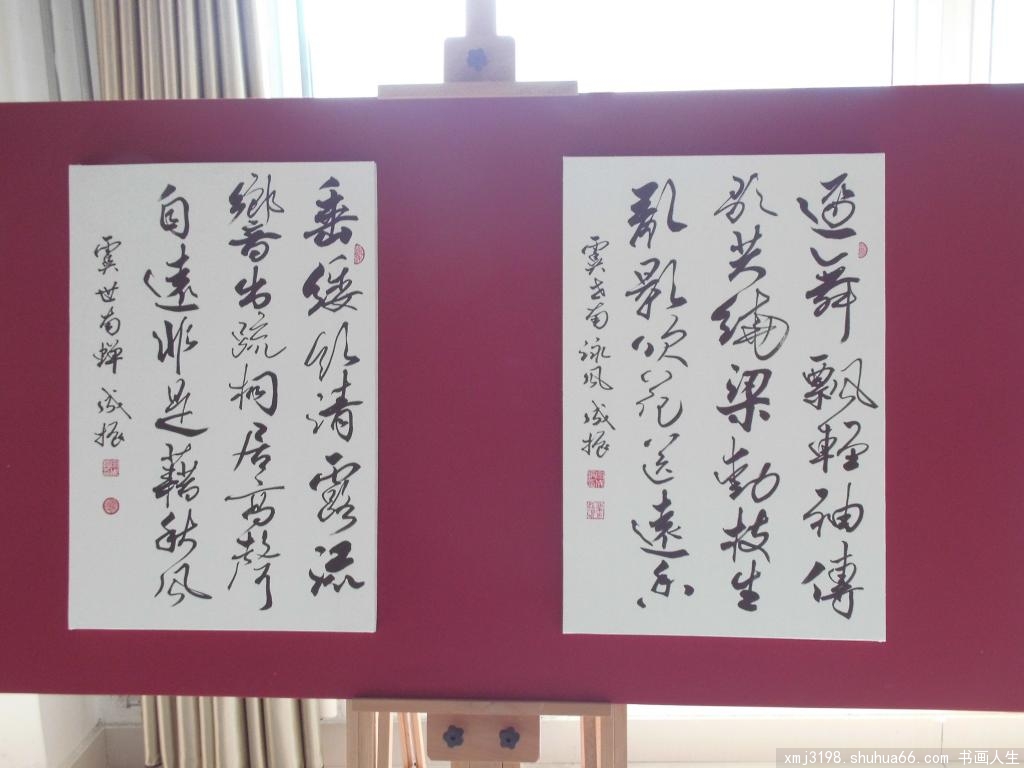 逐舞飄輕袖傳
歌共繞梁動枝生
亂影吹花送遠香
虞世南詠風 振
垂緌飲清露流
響出疏桐居高聲
自遠非是藉秋風
虞世南蝉 振
xmj3198.shuhua66.com 书画人生